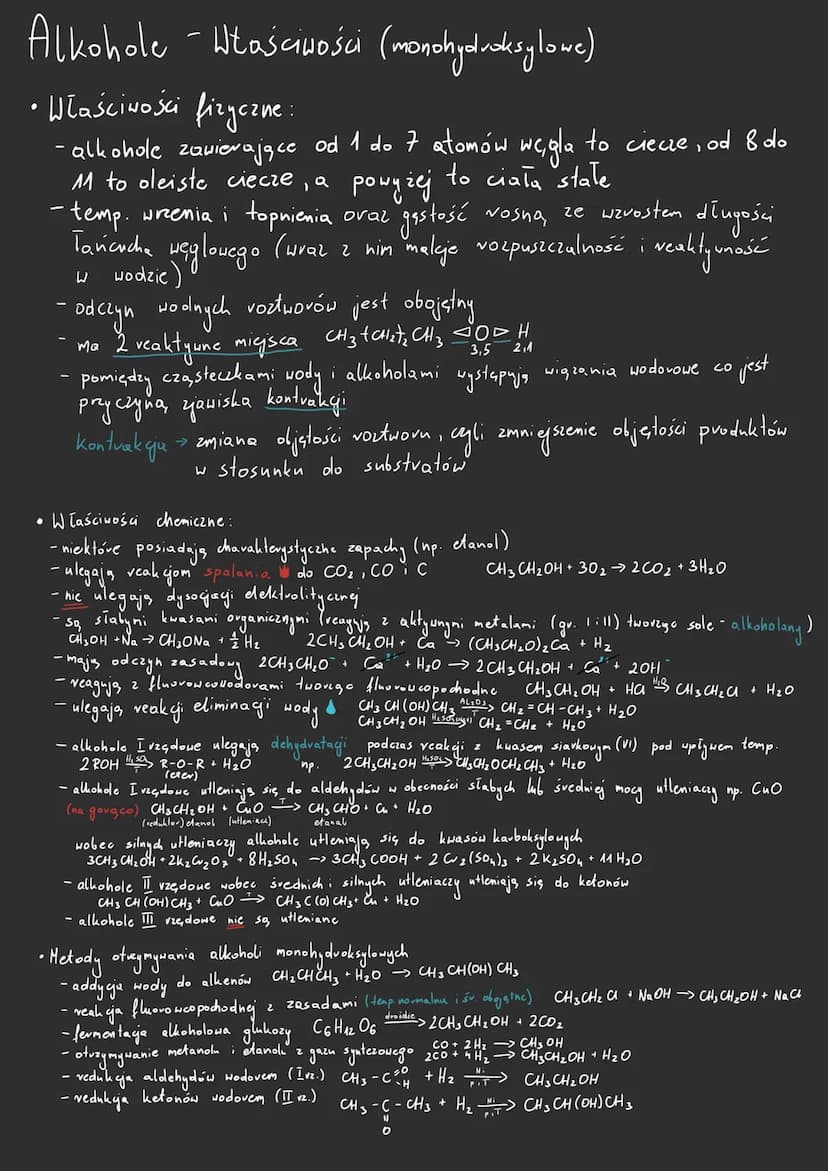 Alkohole - Właściwości (monohydroksylowe)
• Właściwości fizyczne:
- alkohole zawierające od 1 do 7 atomów węgla to ciecze, od 8 do
11 to oleiste ciecze, a powyżej to ciała stałe
- temp. wrzenia i topnienia oraz gęstość rosną ze wzrostem długości
łańcucha węglowego (wraz z nim maleje rozpuszczalność i reaktywność
w wodzie)
- odczyn wodnych roztworów jest obojętny
- ma 2 reaktywne miejsca CH3+CH2+2 CH3 ⊲O⊳ H
3,5 2,1
- pomiędzy cząsteczkami wody i alkoholami występują wiązania wodorowe co jest
przyczyną zjawiska kontrakcji
kontrakcja → zmiana objętości roztworu, czyli zmniejszenie objętości produktów
w stosunku do substratów
• Właściwości chemiczne:
- niektóre posiadają charakterystyczne zapachy (np. etanol)
- ulegają reakcjom spalania do CO2, CO i C CH3CH2OH + 3O2 → 2CO2 + 3H2O
- nie ulegają dysocjacji elektrolitycznej
- są słabymi kwasami organicznymi (reagują z aktywnymi metalami (gr. I i II) tworząc sole - alkoholany)
CH3OH + Na → CH3ONa + 1/2 H2 2CH3CH2OH + Ca → (CH3CH2O)2Ca + H2
- mają odczyn zasadowy 2CH3CH2O⁻ + Ca²⁺ + H2O → 2CH3CH2OH + Ca²⁺ + 2OH⁻
- reagują z fluorowcowodorami tworząc fluorowcopochodne CH3CH2OH + HCl H2O→ CH3CH2Cl + H2O
- ulegają reakcji eliminacji wody CH3CH(OH)CH3 Al2O3/T→ CH2=CH-CH3 + H2O
CH3CH2OH → CH2=CH2 + H2O
- alkohole I rzędowe ulegają dehydratacji podczas reakcji z kwasem siarkowym (VI) pod wpływem temp.
2ROH H2SO4→ R-O-R + H2O np. 2CH3CH2OH H2SO4→ CH3CH2OCH2CH3 + H2O
(eter)
- alkohole I rzędowe utleniają się do aldehydów w obecności słabych lub średniej mocy utleniaczy np. CuO
(na gorąco) CH3CH2OH + CuO T→ CH3CHO + Cu + H2O
(reduktor) etanol (utleniacz) etanal
wobec silnych utleniaczy alkohole utleniają się do kwasów karboksylowych
3CH3CH2OH + 2K2Cr2O7 + 8H2SO4 → 3CH3COOH + 2Cr2(SO4)3 + 2K2SO4 + 11H2O
- alkohole II rzędowe wobec średnich i silnych utleniaczy utleniają się do ketonów
CH3CH(OH)CH3 + CuO T→ CH3C(O)CH3 + Cu + H2O
- alkohole III rzędowe nie są utleniane
• Metody otrzymywania alkoholi monohydroksylowych
- addycja wody do alkenów CH2CHCH3 + H2O → CH3CH(OH)CH3
- reakcja fluorowcopochodnej z zasadami (temp. normalna i śr. obojętne) CH3CH2Cl + NaOH → CH3CH2OH + NaCl
- fermentacja alkoholowa glukozy C6H12O6 drożdże→ 2CH3CH2OH + 2CO2
- otrzymywanie metanolu i etanolu z gazu syntezowego CO + 2H2 → CH3OH
2CO + 4H2 → CH3CH2OH + H2O
- redukcja aldehydów wodorem (I rz.) CH3-C=O-H + H2 Ni/p,T→ CH3CH2OH
- redukcja ketonów wodorem (II rz.) CH3-C-CH3 + H2 Ni/p,T→ CH3CH(OH)CH3
=
O